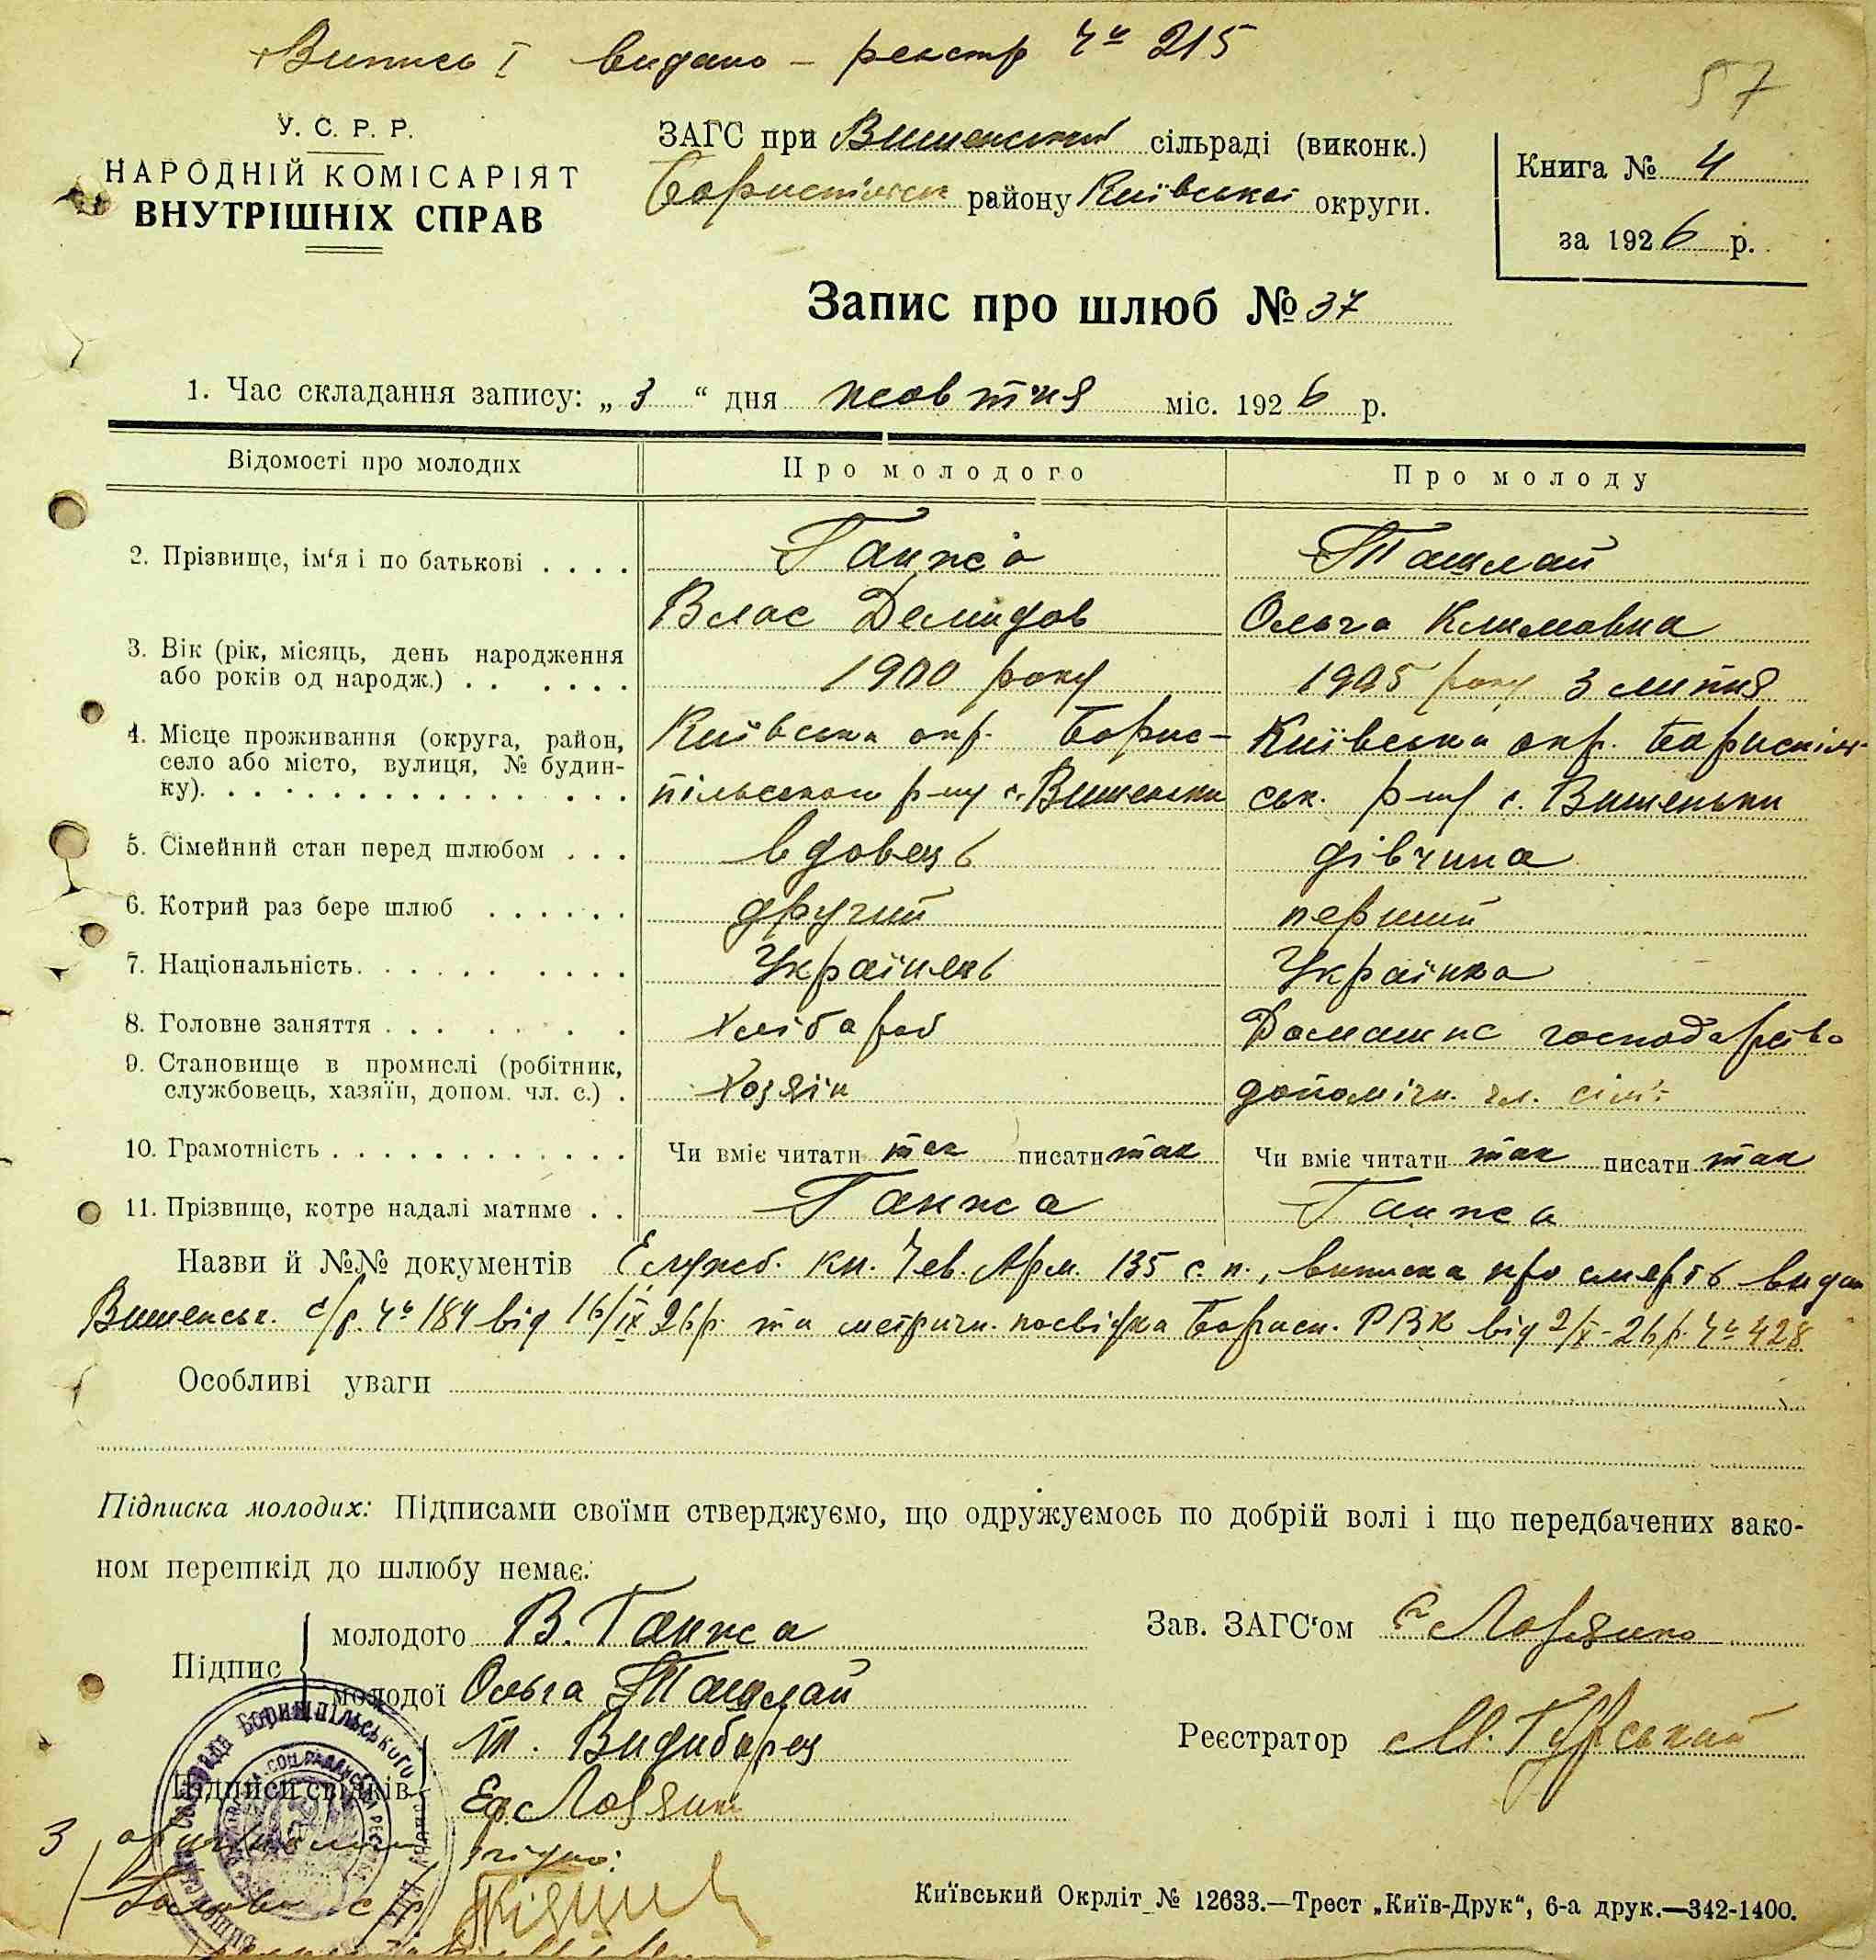 Випись I видано – реєстр Ч° 215
57
У. С. Р. Р.
НАРОДНІЙ КОМІСАРІЯТ
ВНУТРІШНІХ СПРАВ
ЗАГС при Вишенській сільраді (виконк.)
Бориспільськ району Київської округи.
Книга № 4
за 1926 р.
Запис про шлюб № 37
1. Час складання запису: „ 3 “ дня жовтня міс. 1926 р.
Відомості про молодих
Про молодого
Про молоду
2. Прізвище, ім‘я і по батькові . . . .
Ганжа
Ташлай
Влас Демидов
Ольга Климовна
3. Вік (рік, місяць, день народження
або років од народж.) . . . . . .
1900 року
1905 року 3 липня
4. Місце проживання (округа, район,
село або місто, вулиця, № будин-
ку). . . . . . . . . . . . . . . . .
Київська окр. Борис-
пільського р-ну с. Вишеньки
Київська окр. Бориспіль-
ськ. р-ну с. Вишеньки
5. Сімейний стан перед шлюбом . . .
вдовець
дівчина
6. Котрий раз бере шлюб . . . . . .
другий
перший
7. Національність. . . . . . . . . .
Українець
Українка
8. Головне заняття . . . . . . . .
хлібороб
Домашнє господарство
9. Становище в промислі (робітник,
службовець, хазяїн, допом. чл. с.) .
хозяїн
допоміжн. чл. сім'ї
10. Грамотність . . . . . . . . . . . . .
Чи вміє читати так писати так
Чи вміє читати так писати так
11. Прізвище, котре надалі матиме . .
Ганжа
Ганжа
Назви й №№ документів Служб. кн. Чев. Арм. 135 с. п., виписка про смерть видан
Вишенськ. с/р. Ч° 184 від 16/IX 26 р. та метричн. посвідка Борисп. РВК від 2/X-26 р. Ч° 428
Особливі уваги
Підписка молодих: Підписами своїми стверджуємо, що одружуємось по добрій волі і що передбачених зако-
ном перешкід до шлюбу немає.
Підпис
молодого В. Ганжа
молодої Ольга Ташлай
Підписи свідків
Зав. ЗАГС‘ом
Реєстратор М. Гурський
З оригіналом згідно:
Голова с/р
Київський Окрліт № 12633.—Трест „Київ-Друк“, 6-а друк.—342-1400.